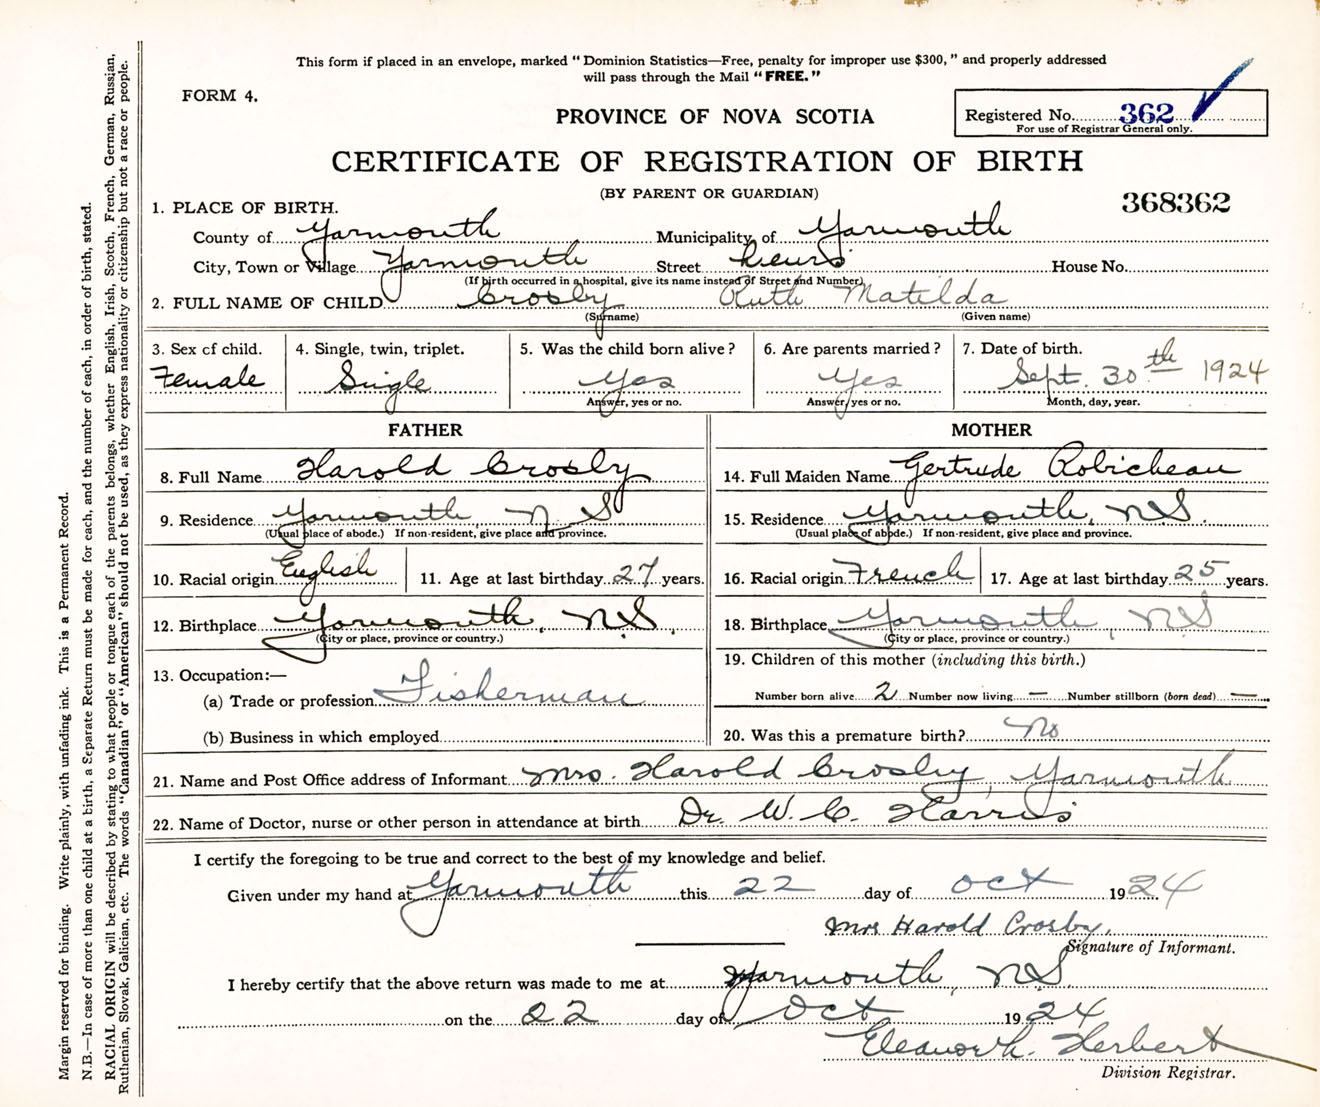 This form if placed in an envelope, marked "Dominion Statistics—Free, penalty for improper use $300," and properly addressed
will pass through the Mail "FREE."
FORM 4.
PROVINCE OF NOVA SCOTIA
Registered No. 362
For use of Registrar General only.
CERTIFICATE OF REGISTRATION OF BIRTH
(BY PARENT OR GUARDIAN)
368362
1. PLACE OF BIRTH.
County of Yarmouth Municipality of Yarmouth
City, Town or Village Yarmouth Street Lewis House No.
(If birth occurred in a hospital, give its name instead of Street and Number)
2. FULL NAME OF CHILD Crosby Ruth Matilda
(Surname) (Given name)
3. Sex of child. 4. Single, twin, triplet. 5. Was the child born alive? 6. Are parents married? 7. Date of birth.
Female Single Yes Yes Sept. 30th 1924
Answer, yes or no. Answer, yes or no. Month, day, year.
FATHER MOTHER
8. Full Name Harold Crosby 14. Full Maiden Name Gertrude Robicheau
9. Residence Yarmouth, N S 15. Residence Yarmouth, N.S.
(Usual place of abode.) If non-resident, give place and province. (Usual place of abode.) If non-resident, give place and province.
10. Racial origin English 11. Age at last birthday 27 years. 16. Racial origin French 17. Age at last birthday 25 years.
12. Birthplace Yarmouth, N.S. 18. Birthplace Yarmouth, N S
(City or place, province or country.) (City or place, province or country.)
13. Occupation:— 19. Children of this mother (including this birth.)
(a) Trade or profession Fisherman Number born alive 2 Number now living — Number stillborn (born dead) —
(b) Business in which employed 20. Was this a premature birth? No
21. Name and Post Office address of Informant Mrs. Harold Crosby, Yarmouth
22. Name of Doctor, nurse or other person in attendance at birth Dr. W. C. Harris
I certify the foregoing to be true and correct to the best of my knowledge and belief.
Given under my hand at Yarmouth this 22 day of Oct 1924
Mrs Harold Crosby.
Signature of Informant.
I hereby certify that the above return was made to me at Yarmouth, N S.
on the 22 day of Oct 1924
Eleanor h. Herbert
Division Registrar.
Margin reserved for binding. Write plainly, with unfading ink. This is a Permanent Record.
N.B.—In case of more than one child at a birth, a Separate Return must be made for each, and the number of each, in order of birth, stated.
RACIAL ORIGIN will be described by stating to what people or tongue each of the parents belongs, whether English, Irish, Scotch, French, German, Russian,
Ruthenian, Slovak, Galician, etc. The words "Canadian" or "American" should not be used, as they express nationality or citizenship but not a race or people.